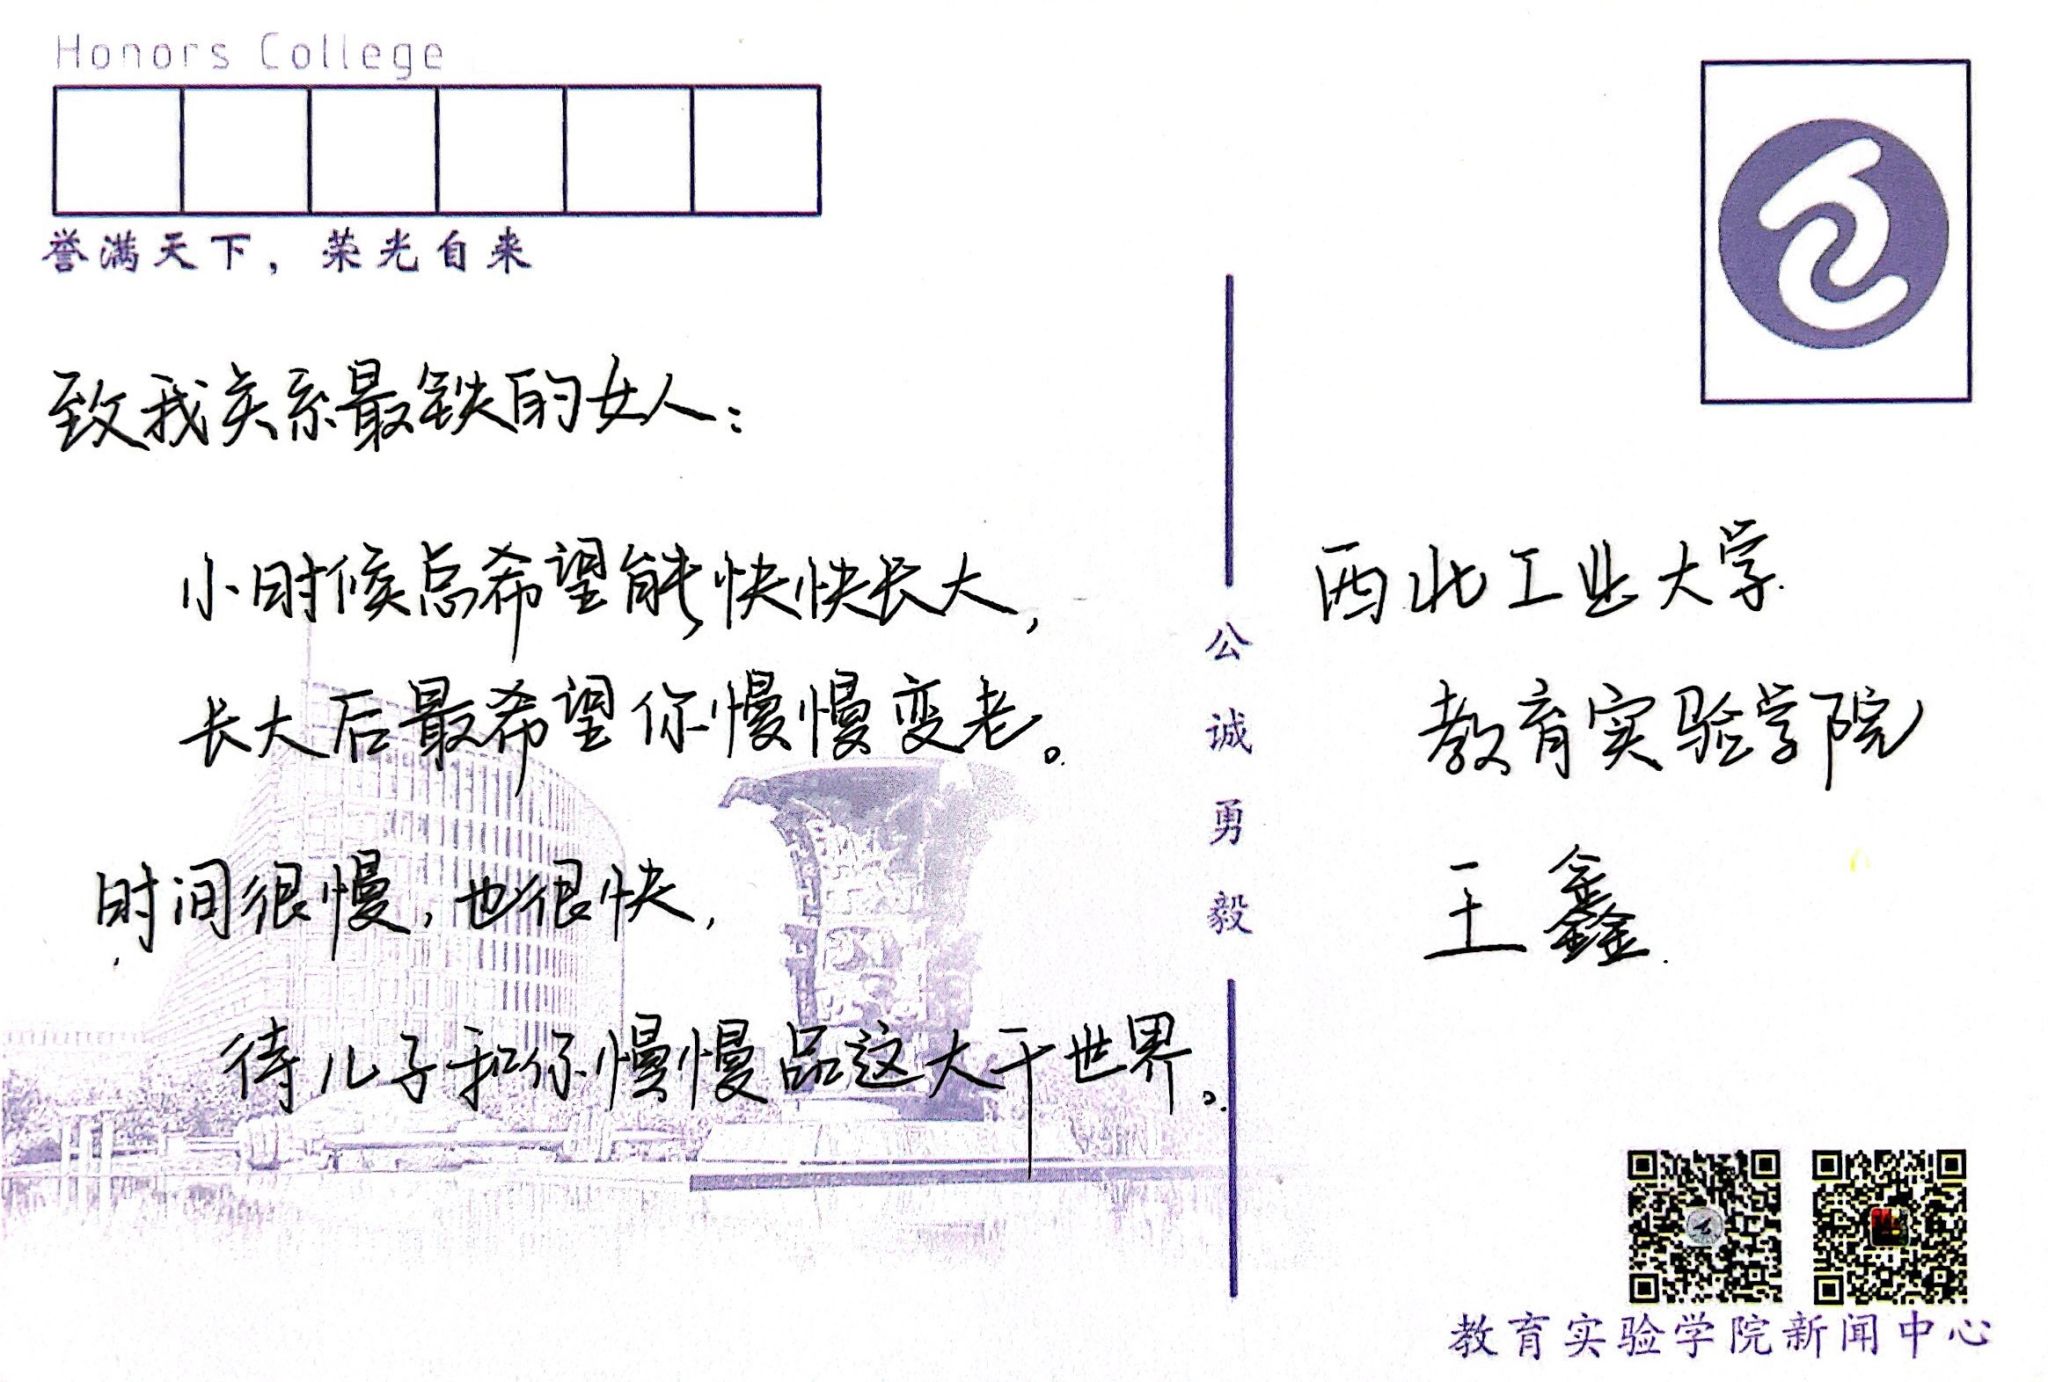 Honors College
誉满天下，荣光自来
致我关系最铁的女人：
小时候总希望能快快长大，
长大后最希望你慢慢变老。
时间很慢，也很快，
待儿子和你慢慢品这大千世界。
公诚勇毅
西北工业大学
教育实验学院
王鑫
教育实验学院新闻中心